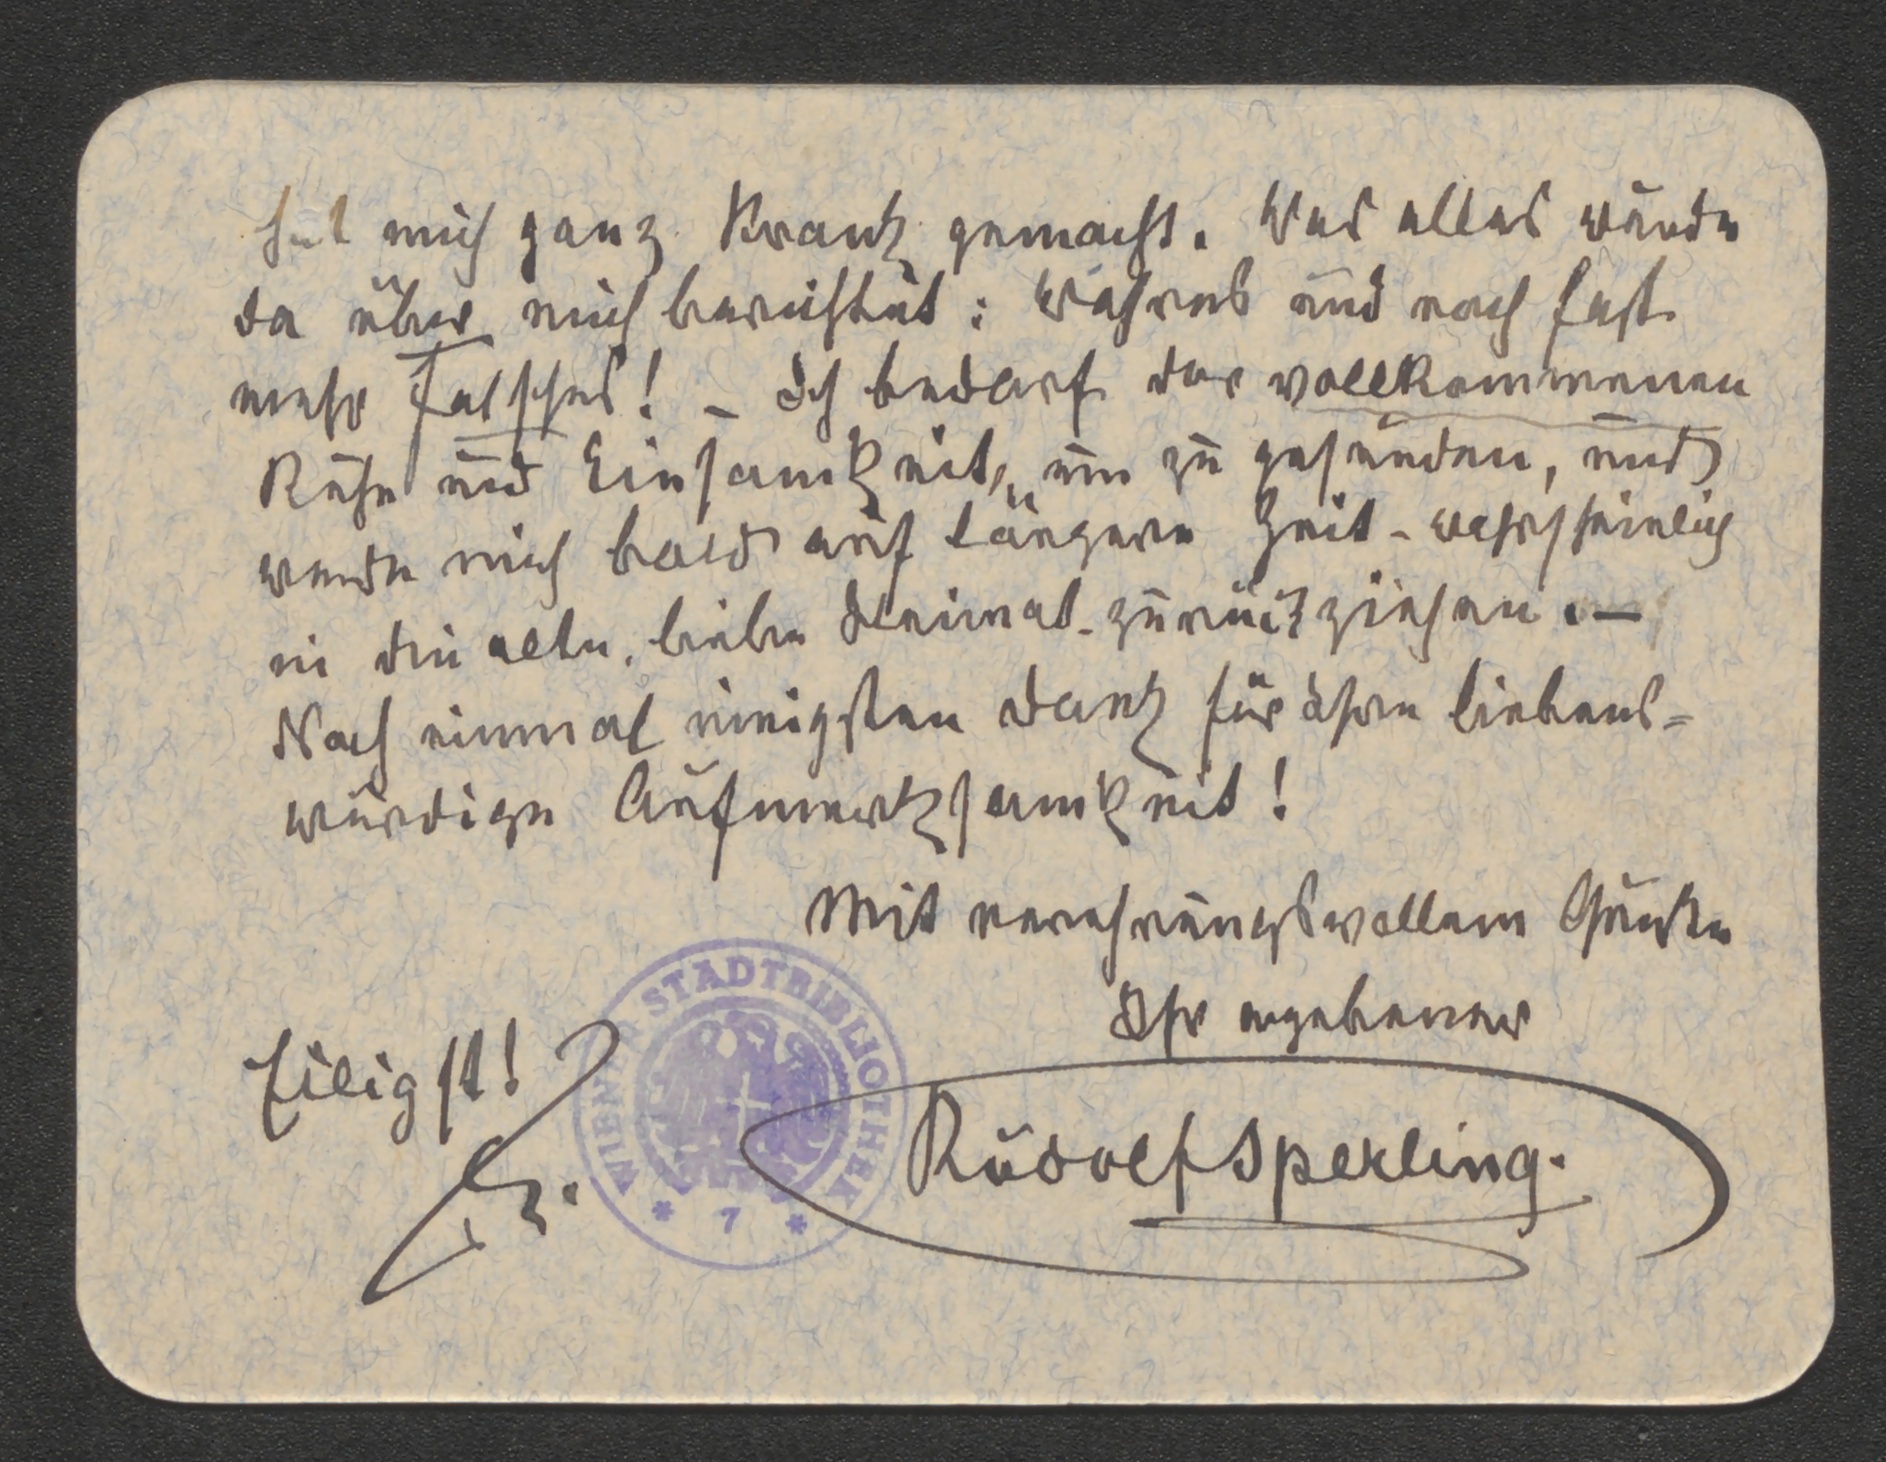 hat mich ganz krank gemacht. Was alles wurde
da über mich berichtet: Wahres und noch fast
mehr Falsches! – Ich bedarf der vollkommenen
Ruhe und Einsamkeit, um zu gesunden, und
werde mich bald auf längere Zeit - wahrscheinlich
in die alte, liebe Heimat - zurückziehen. –
Noch einmal innigsten Dank für Ihre liebens=
würdige Aufmerksamkeit!
Mit verehrungsvollem Gruße
Ihr ergebener
Rudolf Sperling.
Eiligst!
WIENER STADTBIBLIOTHEK
* 7 *